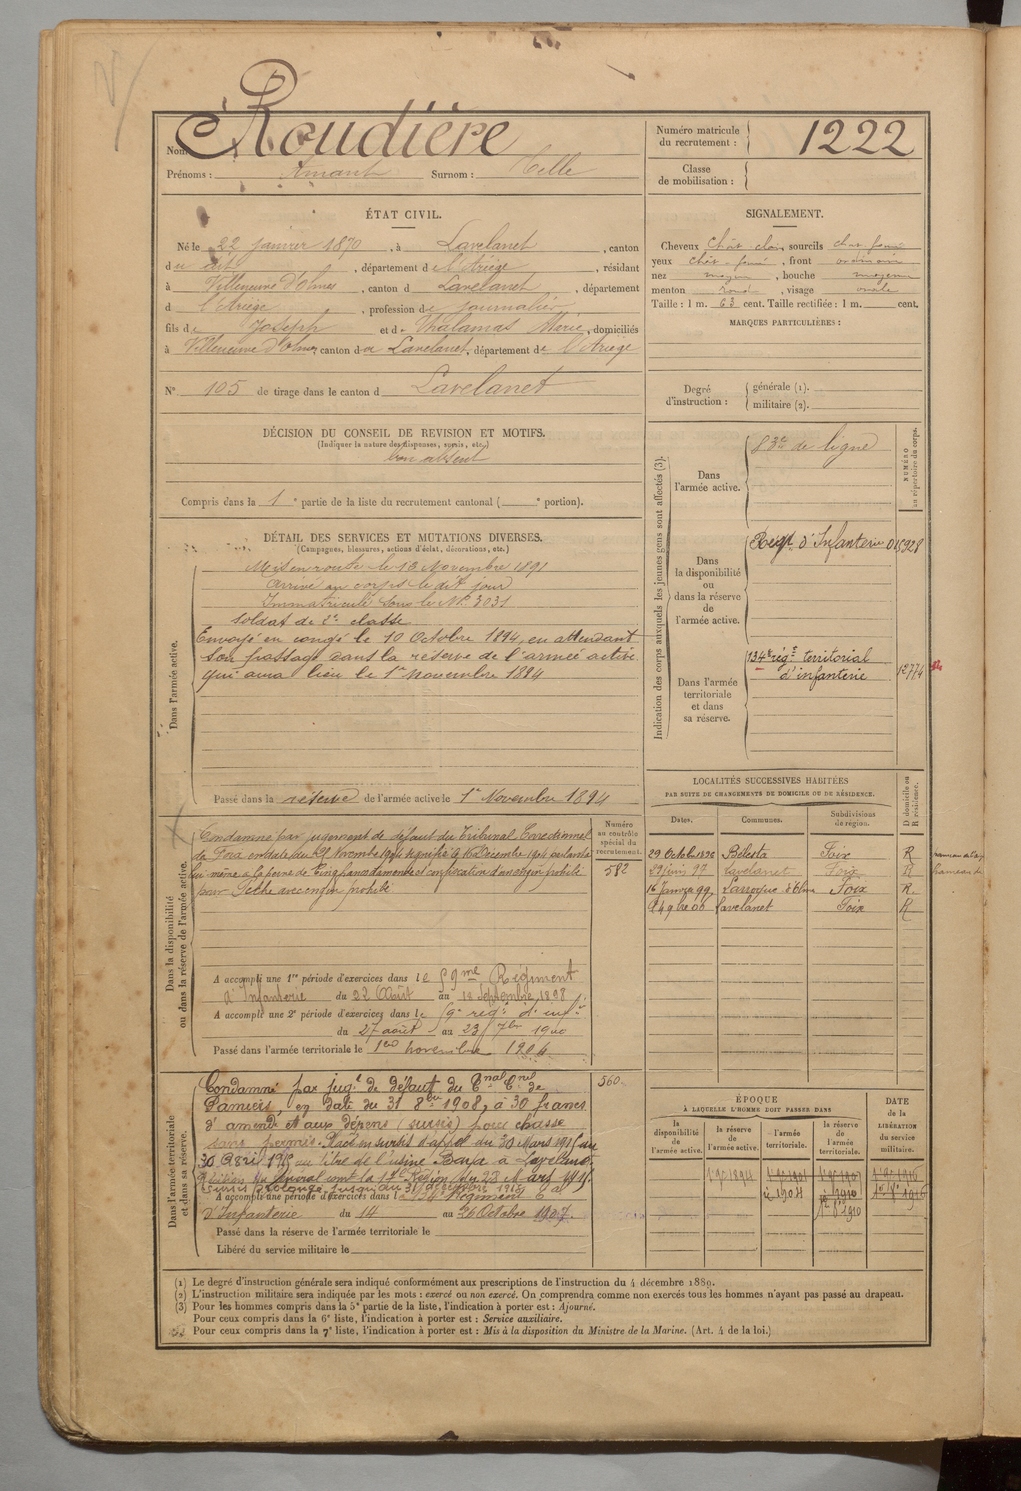 Nom Roudière
Prénoms : Amant Surnom : Melle
Numéro matricule du recrutement : 1222
Classe de mobilisation :
ÉTAT CIVIL.
Né le 22 janvier 1870, à Lavelanet, canton
du dit, département de l'Ariège, résidant
à Villeneuve d'Olmes, canton d Lavelanet, département
d l'Ariège, profession de journalier
fils de Joseph et de Thalamas Marie, domiciliés
à Villeneuve d'Olmes canton de Lavelanet, département de l'Ariège
N° 105 de tirage dans le canton d Lavelanet
SIGNALEMENT.
Cheveux chât-clair, sourcils chat. foncé
yeux chât-foncé, front ordinaire
nez moyen, bouche moyenne
menton rond, visage ovale
Taille : 1 m. 63 cent. Taille rectifiée : 1 m. cent.
MARQUES PARTICULIÈRES :
Degré d'instruction : générale (1).
militaire (2).
DÉCISION DU CONSEIL DE REVISION ET MOTIFS.
(Indiquer la nature des dispenses, sursis, etc.)
bon absent
Compris dans la 1e partie de la liste du recrutement cantonal ( e portion).
DÉTAIL DES SERVICES ET MUTATIONS DIVERSES.
(Campagnes, blessures, actions d'éclat, décorations, etc.)
Dans l'armée active.
Mis en route le 13 Novembre 1891
Arrivé au corps le dit jour
Immatriculé sous le N° 3031
Soldat de 2e classe
Envoyé en congé le 10 Octobre 1894, en attendant
son passage dans la réserve de l'armée active
qui aura lieu le 1er Novembre 1894
Passé dans la réserve de l'armée active le 1er Novembre 1894
Indication des corps auxquels les jeunes gens sont affectés (3).
NUMÉRO au répertoire du corps.
Dans l'armée active.
83e de ligne
Dans la disponibilité ou dans la réserve de l'armée active.
Régt d'Infanterie 015928
Dans l'armée territoriale et dans sa réserve.
134e rég.t territorial
d'infanterie 12774
Dans la disponibilité ou dans la réserve de l'armée active.
Numéro au contrôle spécial du recrutement.
582
Condamné par jugement de défaut du Tribunal Correctionnel
de Foix en date du 25 Novembre 1904 signifié le 16 Décembre 1904 parlant à
lui-même à la peine de Cinq francs d'amende et confiscation d'un engin prohibé
pour Pêche avec engin prohibé
A accompli une 1re période d'exercices dans le 59me Régiment
d'Infanterie du 22 Août au 18 Septembre 1898
A accompli une 2e période d'exercices dans le 59e rég.t d'inf.ie
du 27 août au 23 7bre 1900
Passé dans l'armée territoriale le 1er novembre 1904
LOCALITÉS SUCCESSIVES HABITÉES
PAR SUITE DE CHANGEMENTS DE DOMICILE OU DE RÉSIDENCE.
Dates. Communes. Subdivisions de région. D. domicile ou R. résidence.
29 Octobre 1896 Bélesta Foix R
29 juin 97 Lavelanet Foix R
16 Janvier 99 Larroque d'Olmes Foix R.
Lavelanet Foix R
Dans l'armée territoriale et dans sa réserve.
560
Condamné par jug.t de défaut du Tnal Cnel de
Pamiers, en date du 31 8bre 1908, à 30 francs
d'amende et aux dépens (sursis) pour chasse
sans permis. Placé en sursis d'appel du 30 Mars 1915 au
30 Avril 1915 au titre de l'usine à Lavelanet
du Général comt la 17e Région du 28 Mars 1915.
Sursis prolongé jusqu'au 31
A accompli une période d'exercices dans le 134e Régiment
d'Infanterie du 14 au 26 Octobre 1907.
Passé dans la réserve de l'armée territoriale le
Libéré du service militaire le
ÉPOQUE
À LAQUELLE L'HOMME DOIT PASSER DANS
DATE de la LIBÉRATION du service militaire.
la disponibilité de l'armée active. la réserve de l'armée active. l'armée territoriale. la réserve de l'armée territoriale.
(1) Le degré d'instruction générale sera indiqué conformément aux prescriptions de l'instruction du 4 décembre 1889.
(2) L'instruction militaire sera indiquée par les mots : exercé ou non exercé. On comprendra comme non exercés tous les hommes n'ayant pas passé au drapeau.
(3) Pour les hommes compris dans la 5e partie de la liste, l'indication à porter est : Ajourné.
Pour ceux compris dans la 6e liste, l'indication à porter est : Service auxiliaire.
Pour ceux compris dans la 7e liste, l'indication à porter est : Mis à la disposition du Ministre de la Marine. (Art. 4 de la loi.)